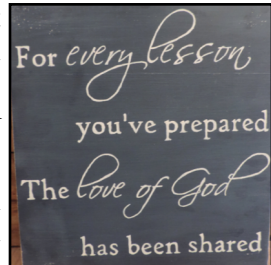 For every lesson,
you've prepared
The love of God
has been shared